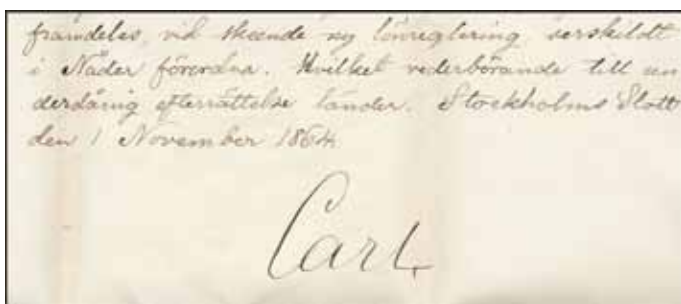 framdeles, vid skeende ny lönreglering serskildt
i Nåder förordna. Hvilket vederbörande till un
derdånig efterrättelse länder. Stockholms Slott
den 1 November 1864
Carl